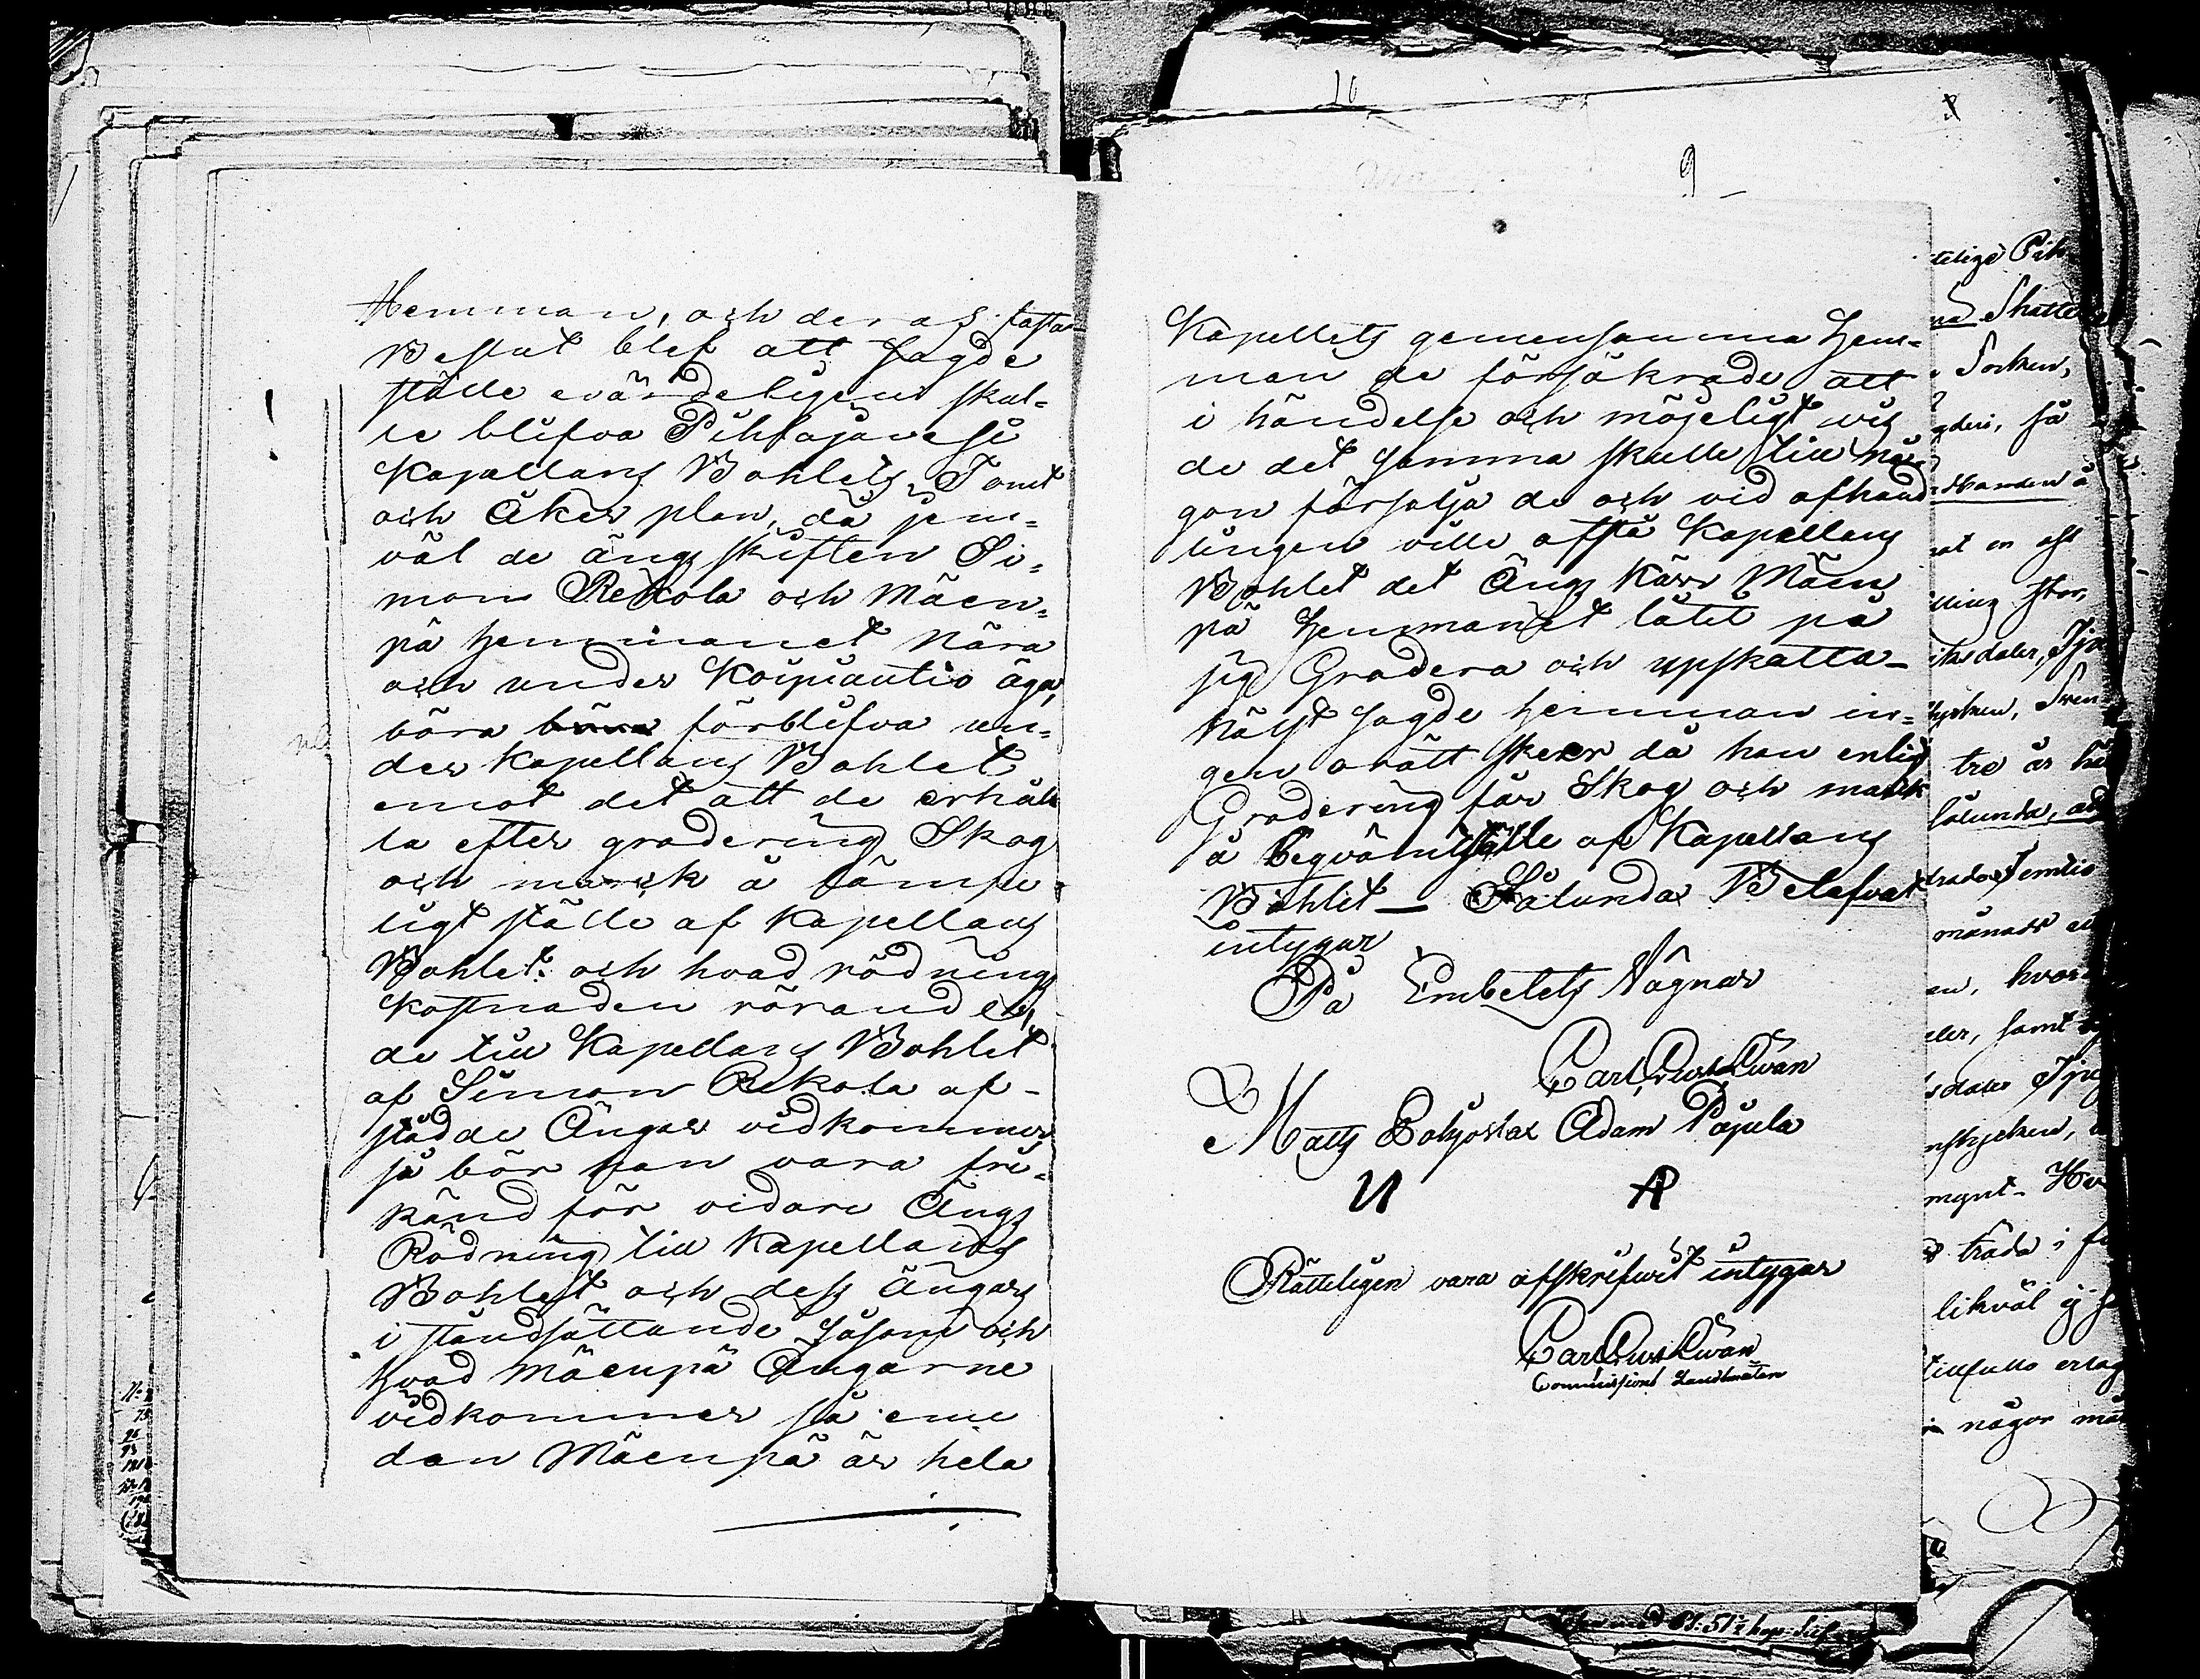 Hemman, och deras fasta-
Beslut blef att sagde
ställe evärdeligens skul=
le blifva Pihtajävesi
Kapellans Bohlets Tomt
och Åker plan, då jem=
väl de ängs skiften Si=
mon Rekola och Mäen=
pä hemmanet nära
och under Koipiautio äga,
böra förblifva un=
der Kapellans Bohlet
emot det att de erhål
la efter gradering Skog
och marck å lämpe=
ligt ställe af Kapellans
Bohlet: och hvad rödnings
kostnaden rörande,
de till Kapellans Bohlet
af Simon Rekola af-
städde Ängar vidkommer
så bör han vara fri=
känd för vidare Ängs
Rödning till Kapellans
Bohlet och dess ängars
i ståndsättande såsom och
hvad Mäenpä Ängarne
vidkommer så eme
dan Mäenpä är hela
10
9
Kapellets gemensamma hem=
man de försäkrade att
i händelse och möjeligt vis
de det samma skulle till nå=
gon försälja de och vid afhand
lingen ville afstå Kapellans
Bohlet det Ängs Kärr Mäen
pä hemmanet låtit på
sig Gradera och upskatta-
hälst sagde hemman in=
gen orätt sker då han enligt
Gradering får Skog och mark
å beqvämt ställe af Kapellans
Bohlet — Sålunda Belefvat
intygar
På Embetets Vägnar
Carl Gust Civan
Matts Pohjoslax Adam Pajula
U A
Rätteligen vara afskrifwit intygar
Carl Gust Civan
Commissions Landtmätare
telige Pih
Skatte
Socken,
så
en
daler, Tju
tre år
sålunda,
månader
hvar
samt
daler Tju
träda i
likväl ej
tillfullo erlag
någor